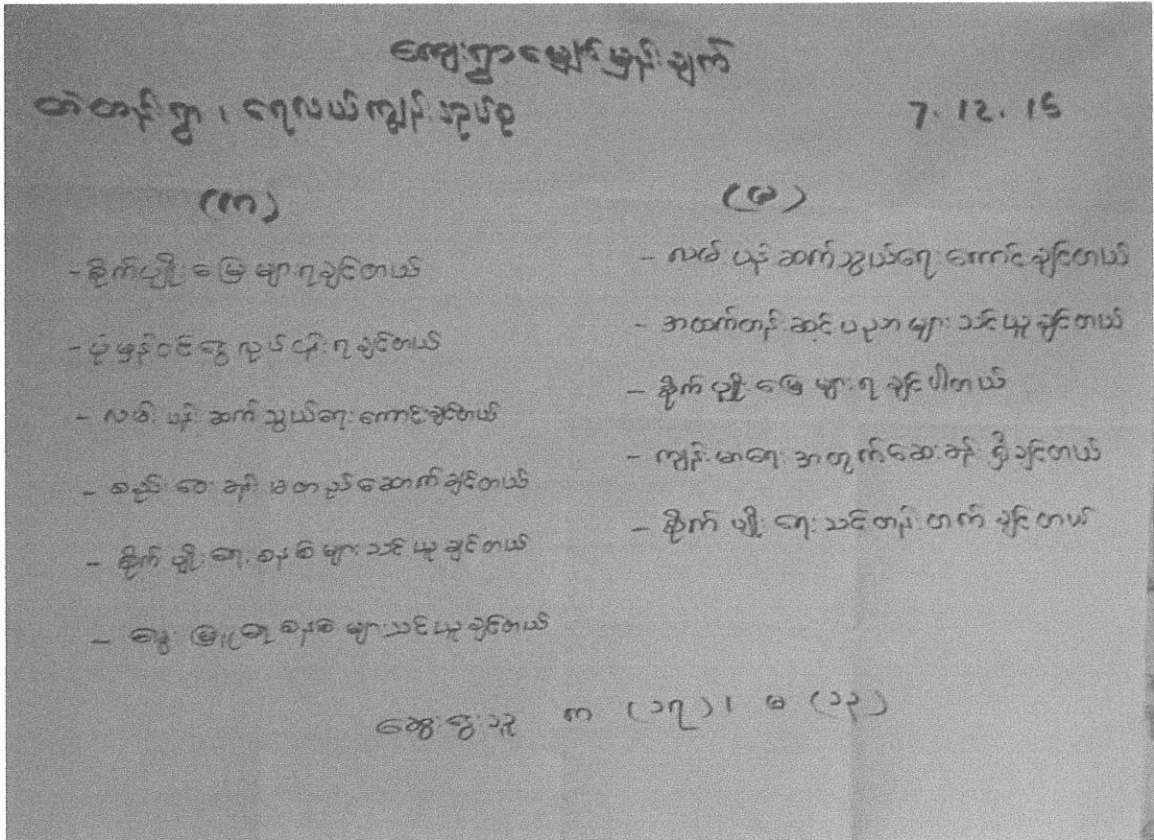 ကျေးရွာမျှော်မှန်းချက်
တံတန်းရွာ ၊ ရေလယ်ကျွန်းအုပ်စု 7.12.15
(က)
- စိုက်ပျိုးမြေများရချင်တယ်
- ပုံမှန်ဝင်ငွေလုပ်ငန်းရချင်တယ်
- လမ်းပန်းဆက်သွယ်ရေးကောင်းချင်တယ်
- စည်းဝေးခန်းမတည်ဆောက်ချင်တယ်
- စိုက်ပျိုးရေးစနစ်များသင်ယူချင်တယ်
- မွေးမြူရေးစနစ်များသင်ယူချင်တယ်
(မ)
- လမ်းပန်းဆက်သွယ်ရေးကောင်းချင်တယ်
- အထက်တန်းဆင့်ပညာများသင်ယူချင်တယ်
- စိုက်ပျိုးမြေများရချင်ပါတယ်
- ကျန်းမာရေးအတွက်ဆေးခန်းရှိချင်တယ်
- စိုက်ပျိုးရေးသင်တန်းတက်ချင်တယ်
ဆွေးနွေးသူ က (၁၇) ၊ မ (၁၃)